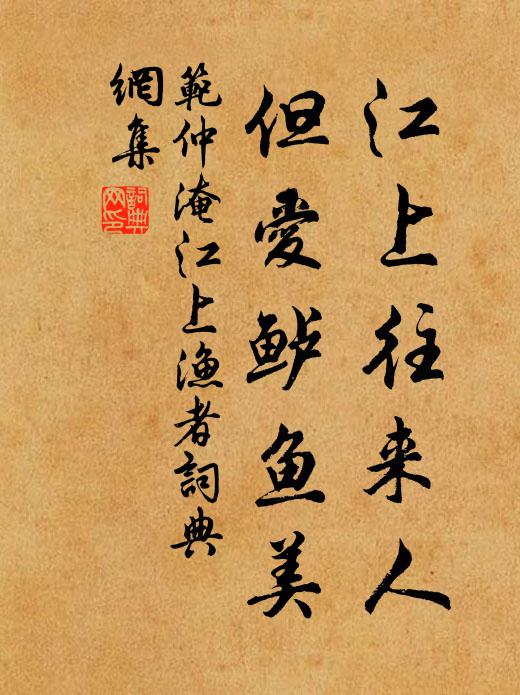 江上往来人
但愛鲈鱼美
範仲淹江上漁者詞典
網集
詞典
网印